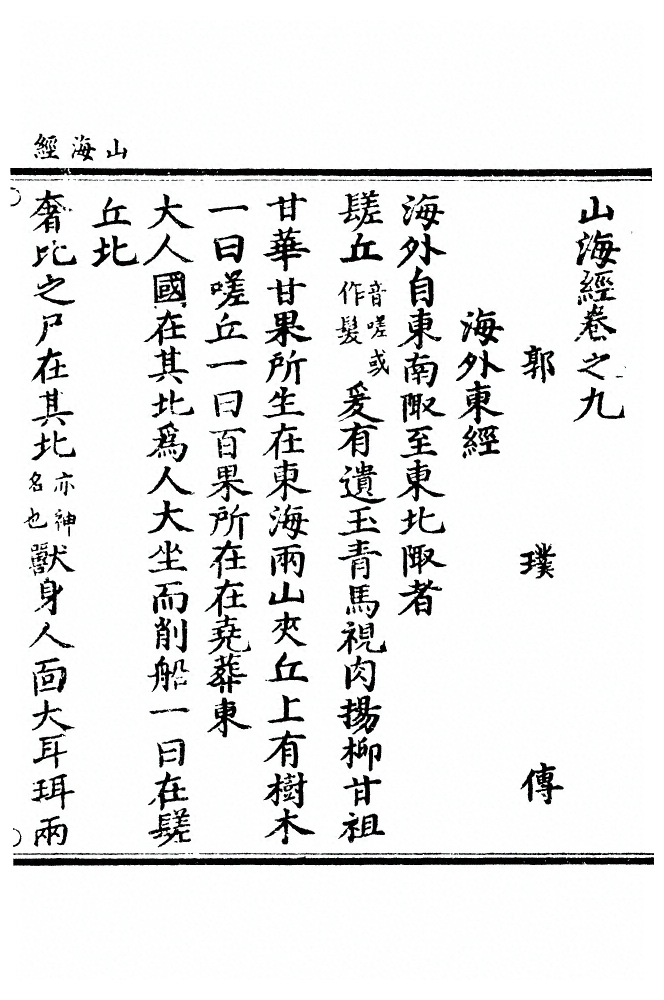 山海經
山海經卷之九
郭璞傳
海外東經
海外自東南陬至東北陬者
𨲠丘音嗟或作髮爰有遺玉青馬視肉揚柳甘柤
甘華甘果所生在東海兩山夾丘上有樹木
一曰嗟丘一曰百果所在在堯葬東
大人國在其北爲人大坐而削船一曰在𨲠
丘北
奢比之尸在其北亦神名也獸身人面大耳珥兩